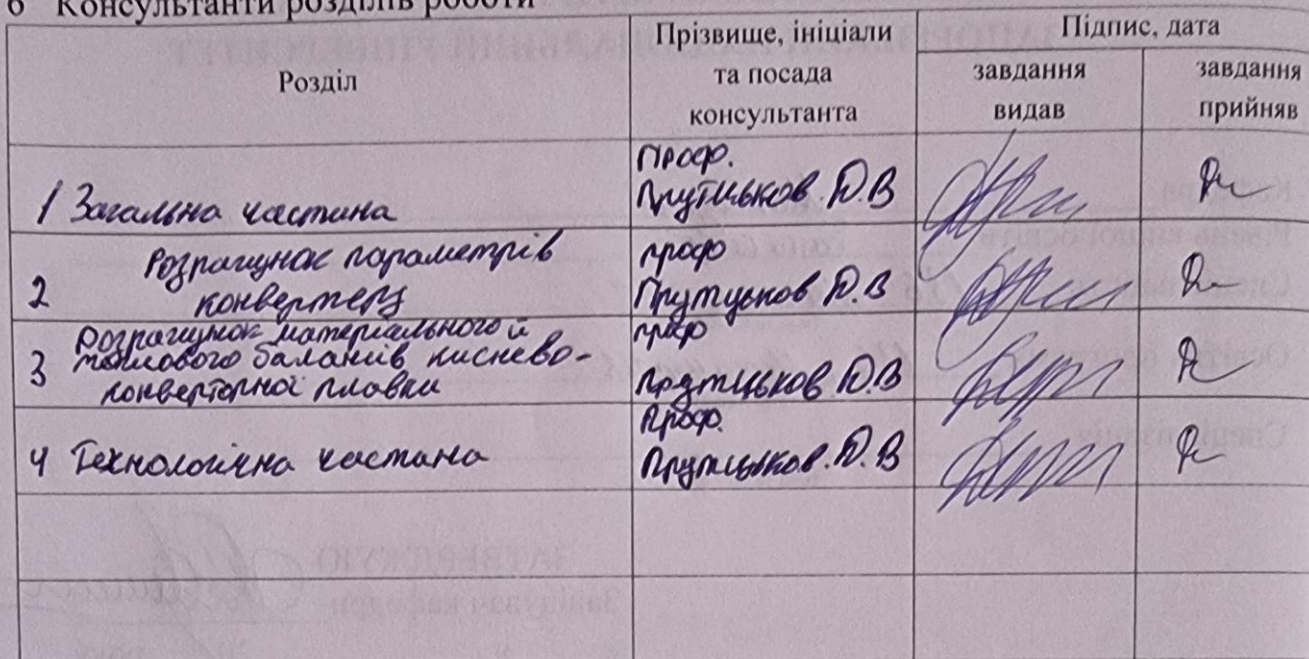 6 Консультанти розділів роботи
Розділ
Прізвище, ініціали
та посада
консультанта
Підпис, дата
завдання
видав
завдання
прийняв
1 Загальна частина
Проф.
Прутцьков Д.В
2 Розрахунок параметрів
конвертеру
проф
Прутцьков Д.В
3 Розрахунок матеріального й
теплового балансів киснево-
конверторної плавки
проф
Прутцьков Д.В
4 Технологічна частина
Проф.
Прутцьков Д.В